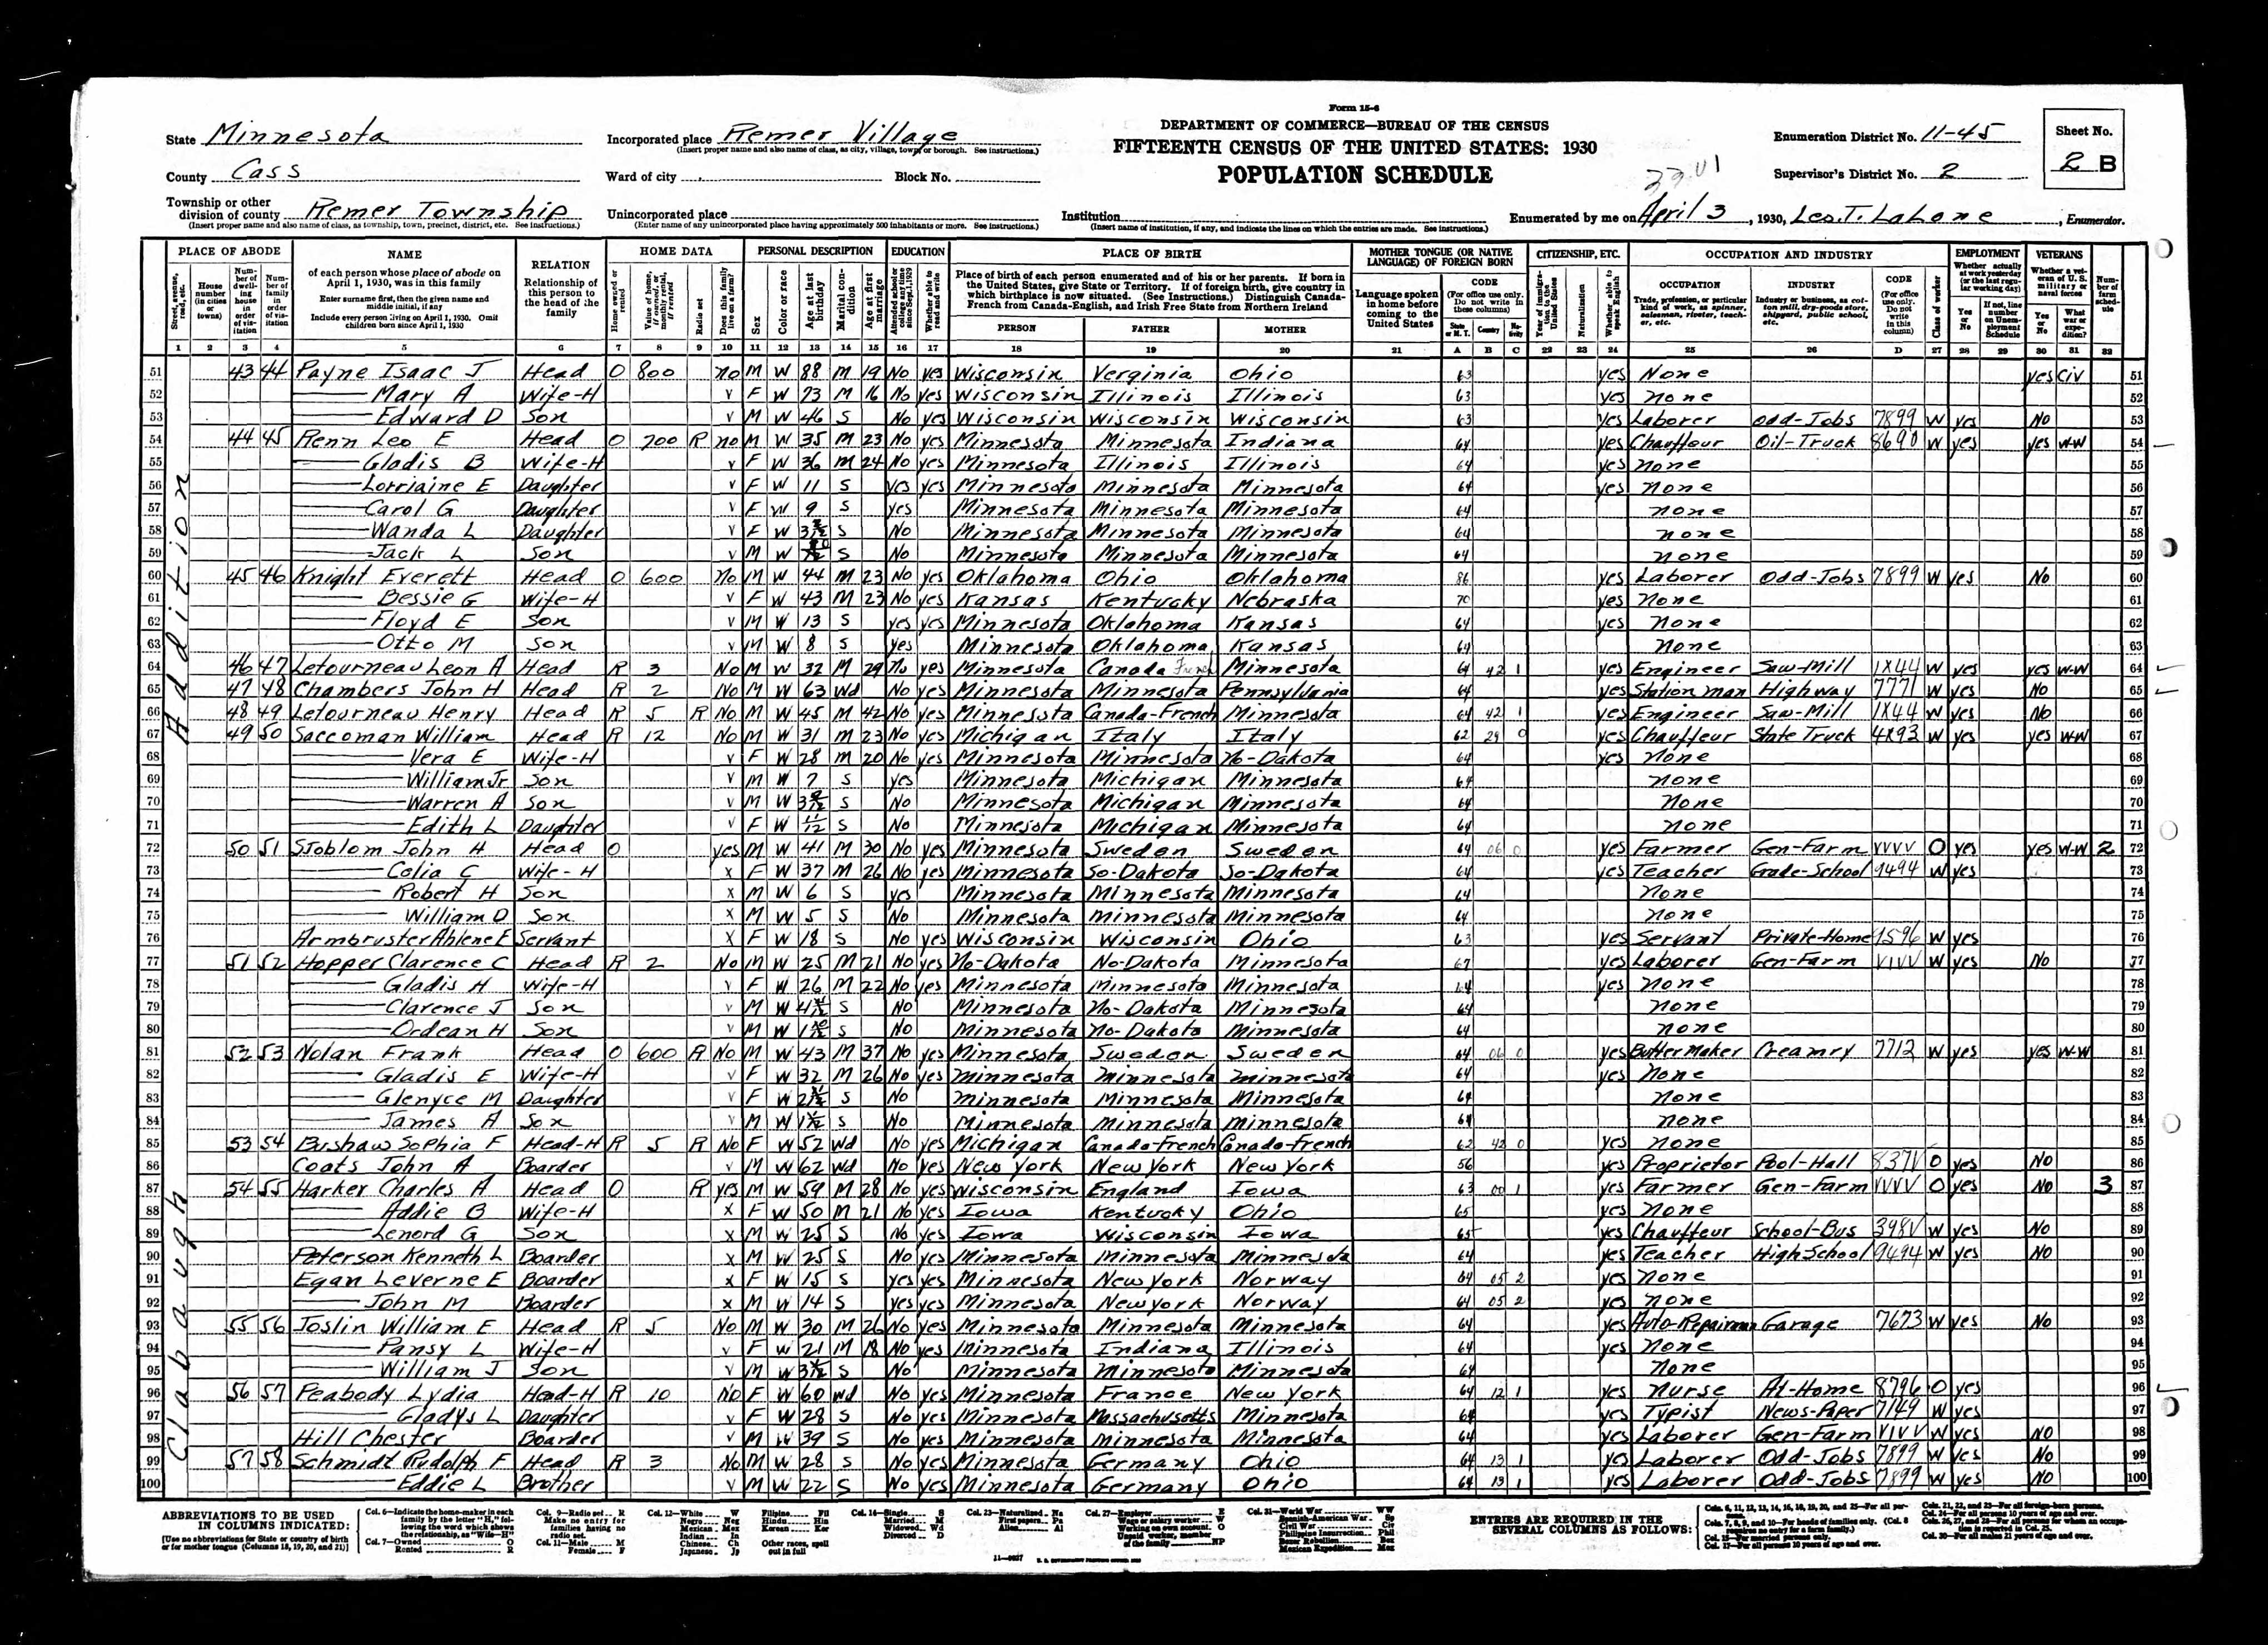 Form 15-6
DEPARTMENT OF COMMERCE—BUREAU OF THE CENSUS
FIFTEENTH CENSUS OF THE UNITED STATES: 1930
POPULATION SCHEDULE
State Minnesota
County Cass
Township or other division of county Remer Township
(Insert proper name and also name of class, as township, town, precinct, district, etc. See instructions.)
Incorporated place Remer Village
(Insert proper name and also name of class, as city, village, town, or borough. See instructions.)
Ward of city
Block No.
Unincorporated place
(Enter name of any unincorporated place having approximately 500 inhabitants or more. See instructions.)
Institution
(Insert name of institution, if any, and indicate the lines on which the entries are made. See instructions.)
Enumeration District No. 11-45
Supervisor's District No. 2
Sheet No. 2 B
Enumerated by me on April 3, 1930, Leo. T. LaHone, Enumerator.
PLACE OF ABODE NAME RELATION HOME DATA PERSONAL DESCRIPTION EDUCATION PLACE OF BIRTH MOTHER TONGUE (OR NATIVE LANGUAGE) OF FOREIGN BORN CITIZENSHIP, ETC. OCCUPATION AND INDUSTRY EMPLOYMENT VETERANS
1 2 3 4 5 6 7 8 9 10 11 12 13 14 15 16 17 18 19 20 21 A B C 22 23 24 25 26 D 27 28 29 30 31 32
Clabaugh Addition
51 43 44 Payne Isaac J Head O 800 no M W 88 M 19 No yes Wisconsin Verginia Ohio 63 yes None yes Civ 51
52 Mary A Wife-H v F W 73 M 16 No yes Wisconsin Illinois Illinois 63 yes none 52
53 Edward D Son v M W 46 S No yes Wisconsin Wisconsin Wisconsin 63 yes Laborer Odd-Jobs 7899 W yes No 53
54 44 45 Renn Leo E Head O 700 R no M W 35 M 23 No yes Minnesota Minnesota Indiana 64 yes Chauffour Oil-Truck 8690 W yes yes W-W 54
55 Gladis B Wife-H v F W 36 M 24 No yes Minnesota Illinois Illinois 64 yes none 55
56 Lorriaine E Daughter v F W 11 S yes yes Minnesota Minnesota Minnesota 64 yes none 56
57 Carol G Daughter v F W 9 S yes Minnesota Minnesota Minnesota 64 none 57
58 Wanda L Daughter v F W S No Minnesota Minnesota Minnesota 64 none 58
59 Jack L Son v M W S No Minnesota Minnesota Minnesota 64 none 59
60 45 46 Knight Everett Head O 600 no M W 44 M 23 No yes Oklahoma Ohio Oklahoma 86 yes Laborer Odd-Jobs 7899 W yes No 60
61 Bessie G Wife-H v F W 43 M 23 No yes Kansas Kentucky Nebraska 70 yes None 61
62 Floyd E Son v M W 13 S yes yes Minnesota Oklahoma Kansas 64 yes None 62
63 Otto M Son v M W 8 S yes Minnesota Oklahoma Kansas 64 None 63
64 46 47 Letourneau Leon A Head R 3 No M W 32 M 29 no yes Minnesota Canada French Minnesota 64 42 1 yes Engineer Saw-Mill 1X44 W yes yes W-W 64
65 47 48 Chambers John H Head R 2 No M W 63 Wd No yes Minnesota Minnesota Pennsylvania 64 yes Station man Highway 7771 W yes No 65
66 48 49 Letourneau Henry Head R 5 R No M W 45 M 42 No yes Minnesota Canada-French Minnesota 64 42 1 yes Engineer Saw-Mill 1X44 W yes No 66
67 49 50 Saccoman William Head R 12 No M W 31 M 23 No yes Michigan Italy Italy 62 29 0 yes Chauffeur State Truck 4X93 W yes yes W-W 67
68 Vera E Wife-H v F W 28 M 20 No yes Minnesota Minnesota No-Dakota 64 yes None 68
69 William Jr Son v M W 7 S yes Minnesota Michigan Minnesota 64 none 69
70 Warren A Son v M W S No Minnesota Michigan Minnesota 64 None 70
71 Edith L Daughter v F W 11/12 S No Minnesota Michigan Minnesota 64 none 71
72 50 51 Stoblom John H Head O yes M W 41 M 30 No yes Minnesota Sweden Sweden 64 06 0 yes Farmer Gen-Farm VVVV O yes yes W-W 2 72
73 Celia C Wife-H x F W 37 M 26 No yes Minnesota So-Dakota So-Dakota 64 yes Teacher Grade-School 9494 W yes 73
74 Robert H Son x M W 6 S yes Minnesota Minnesota Minnesota 64 None 74
75 William D Son x M W 5 S No Minnesota Minnesota Minnesota 64 none 75
76 Armbruster Ahlene E Servant x F W 18 S No yes Wisconsin Wisconsin Ohio 63 yes Servant Private-Home 9596 W yes 76
77 51 52 Hopper Clarence C Head R 2 No M W 25 M 21 No yes No-Dakota No-Dakota Minnesota 67 yes Laborer Gen-Farm VIVV W yes No 77
78 Gladis H Wife-H v F W 26 M 22 No yes Minnesota Minnesota Minnesota 64 yes None 78
79 Clarence J Son v M W S No Minnesota No-Dakota Minnesota 64 none 79
80 Ordean H Son v M W S No Minnesota No-Dakota Minnesota 64 none 80
81 52 53 Nolan Frank Head O 600 R No M W 43 M 37 No yes Minnesota Sweden Sweden 64 06 0 yes Butter Maker Creamry 7712 W yes yes W-W 81
82 Gladis E Wife-H v F W 32 M 26 No yes Minnesota Minnesota Minnesota 64 yes None 82
83 Glenyce M Daughter v F W S No Minnesota Minnesota Minnesota 64 none 83
84 James A Son v M W S No Minnesota Minnesota Minnesota 64 none 84
85 53 54 Bushaw Sophia F Head-H R 5 R No F W 52 Wd No yes Michigan Canada-French Canada-French 62 42 0 yes none 85
86 Coats John A Boarder v M W 62 Wd No yes New York New York New York 56 yes Proprietor Pool-Hall 837V O yes No 86
87 54 55 Harker Charles A Head O R yes M W 59 M 28 No yes Wisconsin England Iowa 63 00 1 yes Farmer Gen-Farm VVVV O yes No 3 87
88 Addie B Wife-H x F W 50 M 21 No yes Iowa Kentucky Ohio 65 yes None 88
89 Lenord G Son x M W 25 S No yes Iowa Wisconsin Iowa 65 yes Chauffeur School-Bus 398V W yes No 89
90 Peterson Kenneth L Boarder x M W 25 S No yes Minnesota Minnesota Minnesota 64 yes Teacher High School 9494 W yes No 90
91 Egan Leverne E Boarder x F W 15 S yes yes Minnesota New York Norway 64 05 2 yes none 91
92 John M Boarder x M W 14 S yes yes Minnesota New York Norway 64 05 2 yes none 92
93 55 56 Joslin William E Head R 5 No M W 30 M 26 No yes Minnesota Minnesota Minnesota 64 yes Auto-Repairman Garage 7673 W yes No 93
94 Pansy L Wife-H v F W 21 M 18 No yes Minnesota Indiana Illinois 64 yes none 94
95 William J Son v M W S No Minnesota Minnesota Minnesota 64 none 95
96 56 57 Peabody Lydia Head-H R 10 No F W 60 wd No yes Minnesota France New York 64 12 1 yes nurse At-Home 8796 O yes 96
97 Gladys L Daughter v F W 28 S No yes Minnesota Massachusetts Minnesota 64 yes Typist News-Paper 7149 W yes 97
98 Hill Chester Boarder v M W 39 S No yes Minnesota Minnesota Minnesota 64 yes Laborer Gen-Farm VIVV W yes No 98
99 57 58 Schmidt Rudolph F Head R 3 No M W 28 S No yes Minnesota Germany Ohio 64 13 1 yes Laborer Odd-Jobs 7899 W yes No 99
100 Eddie L Brother v M W 22 S No yes Minnesota Germany Ohio 64 13 1 yes Laborer Odd-Jobs 7899 W yes No 100
ABBREVIATIONS TO BE USED IN COLUMNS INDICATED:
ENTRIES ARE REQUIRED IN THE SEVERAL COLUMNS AS FOLLOWS: